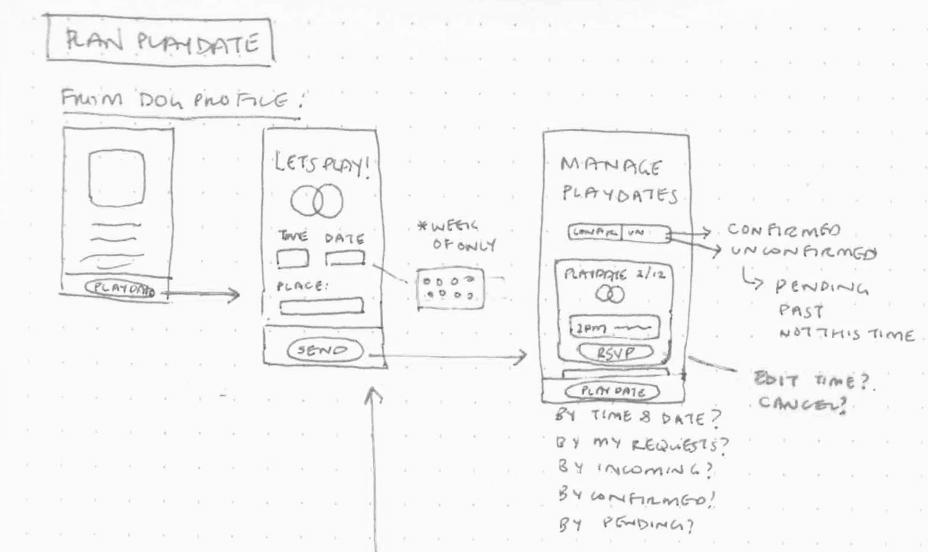 PLAN PLAYDATE
FROM DOG PROFILE:
PLAYDATE
LETS PLAY!
TIME DATE
PLACE:
SEND
*WEEK
OF ONLY
MANAGE
PLAYDATES
CONFIRM UN
CONFIRMED
UNCONFIRMED
PENDING
PAST
NOT THIS TIME
PLAYDATE 2/12
2PM
RSVP
PLAYDATE
EDIT TIME?
CANCEL?
BY TIME & DATE?
BY MY REQUESTS?
BY INCOMING?
BY CONFIRMED!
BY PENDING?